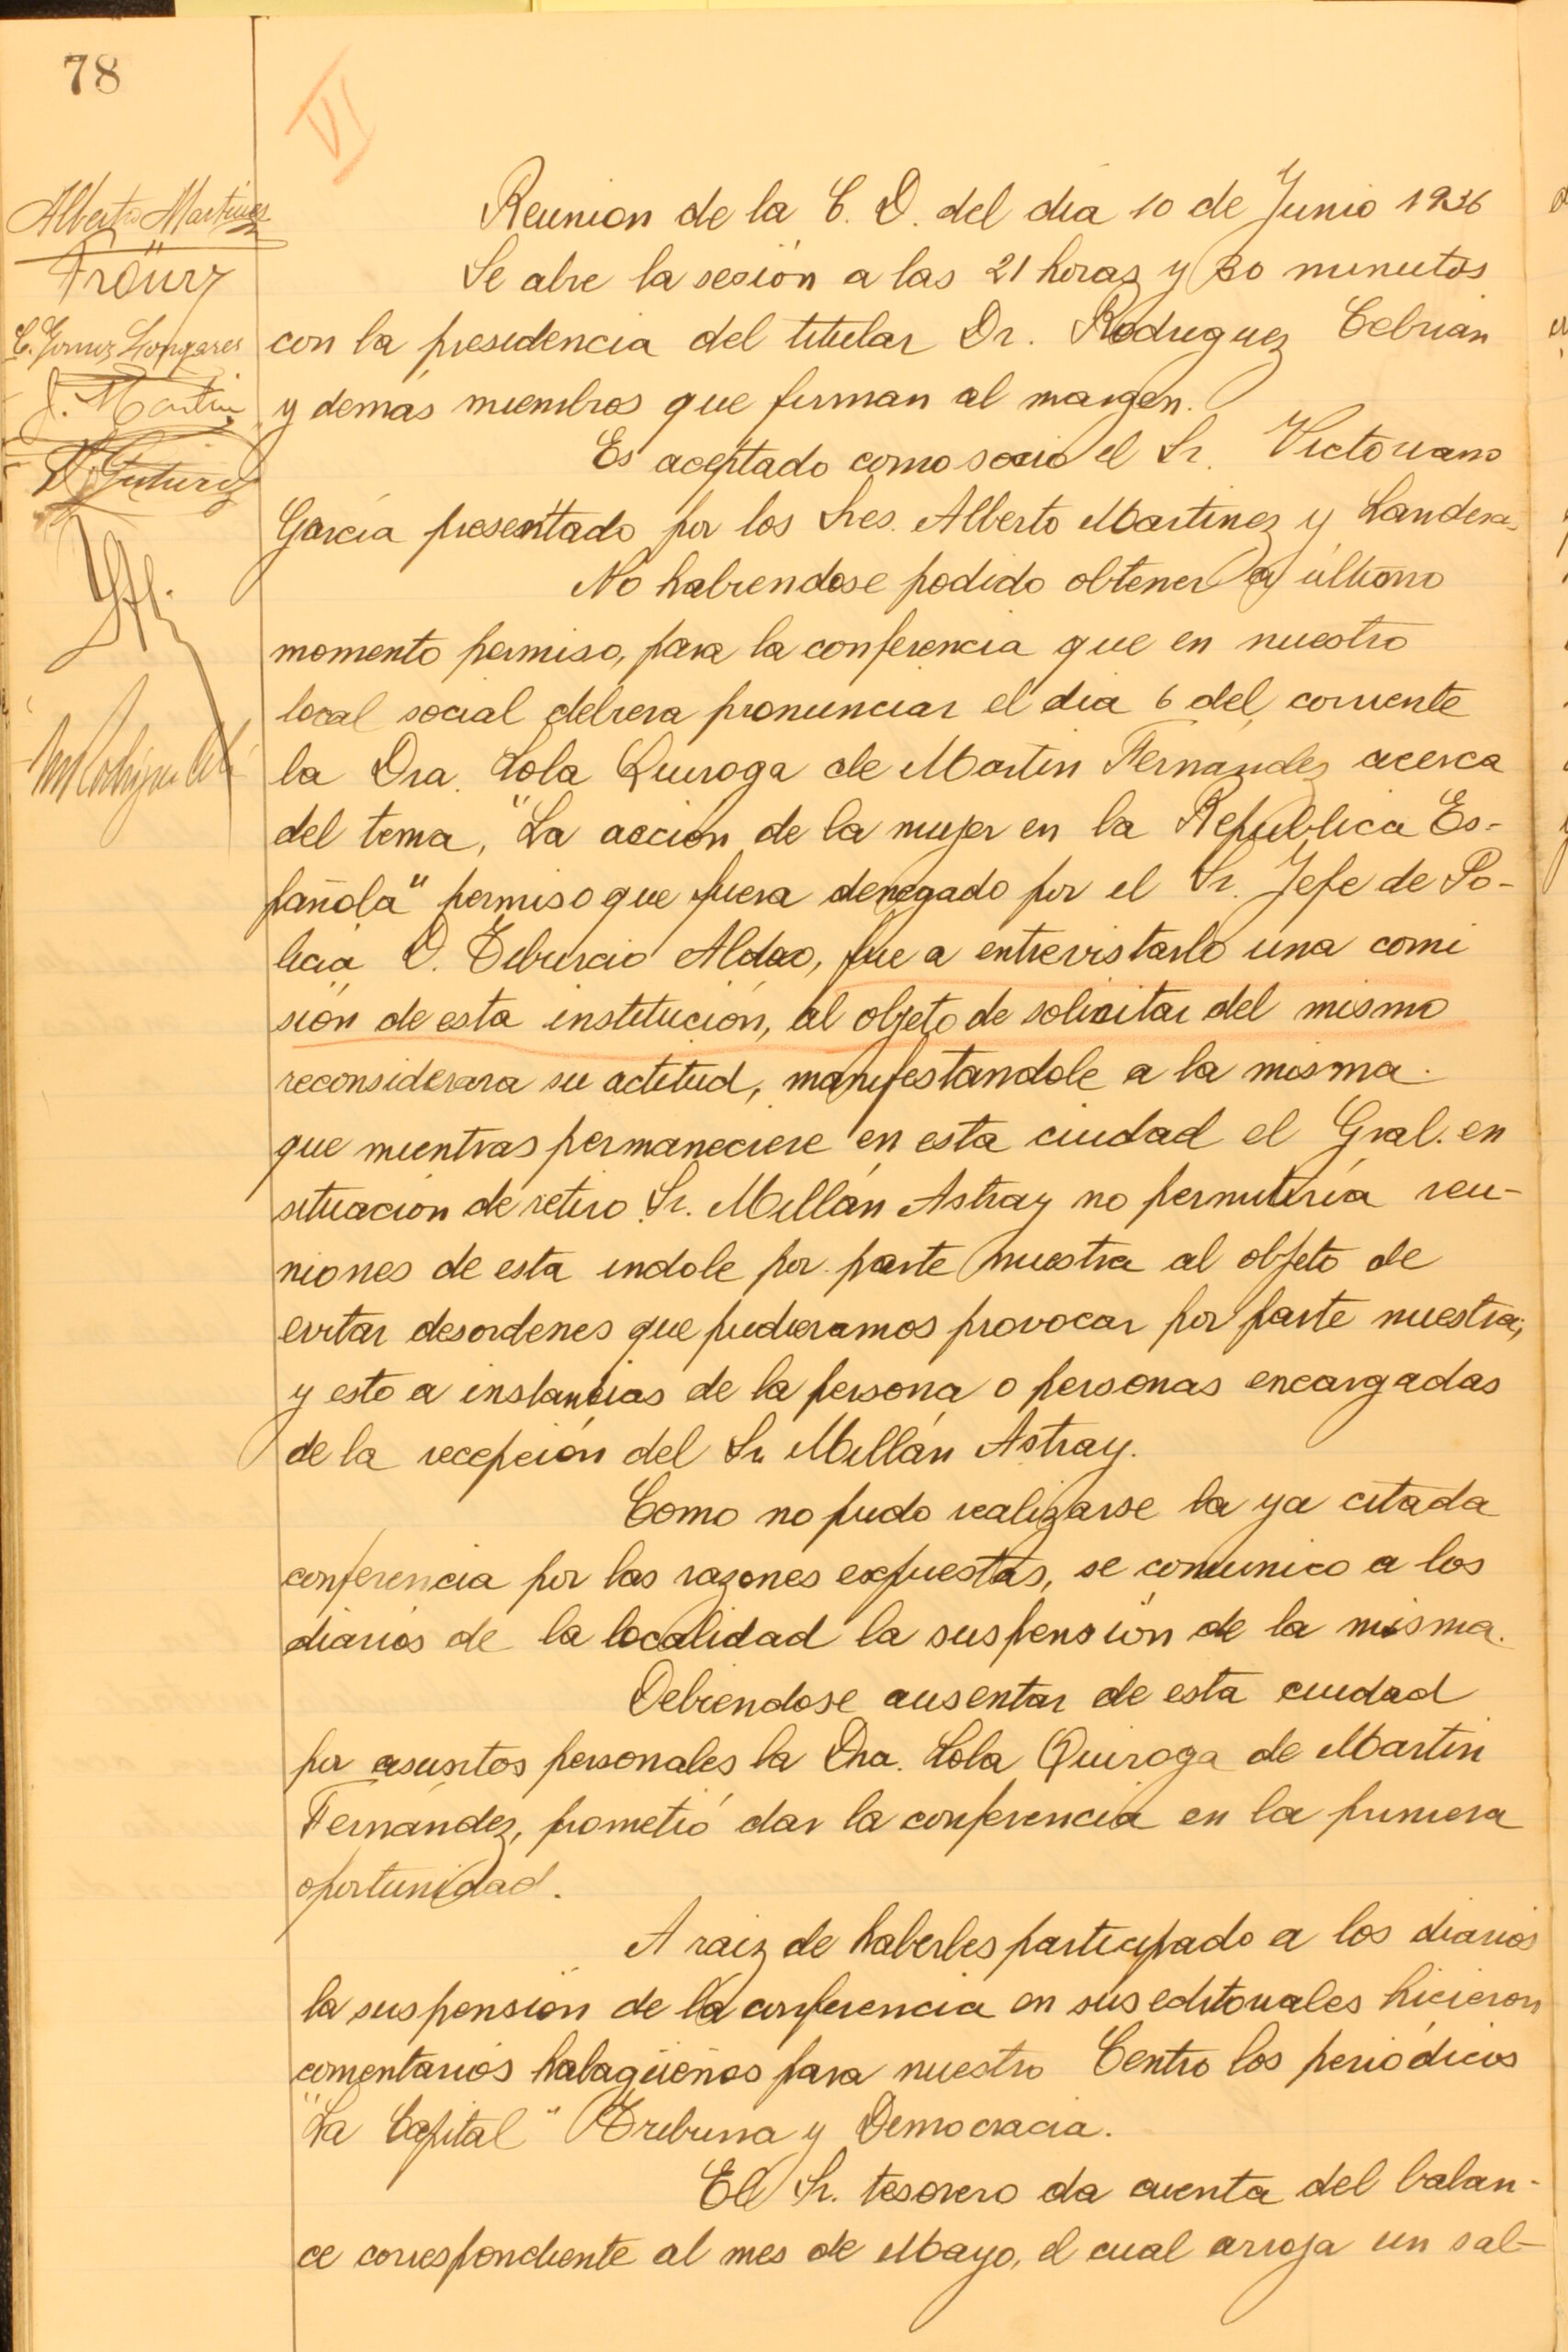 78
VI
Alberto Martínez
Fröurz
C. Gomez Longares
J. Martin
Reunion de la C. D. del día 10 de Junio 1936
Se abre la sesión a las 21 horas y 30 minutos
con la presidencia del titular Dr. Rodriguez Cebrian
y demás miembros que firman al margen.
Es aceptado como socio el Sr. Victoriano
García presentado por los Sres. Alberto Martinez y Landera.
No habiendose podido obtener a último
momento permiso, para la conferencia que en nuestro
local social debiera pronunciar el dia 6 del corriente
la Dra. Lola Quiroga de Martin Fernandez acerca
del tema, "La acción de la mujer en la Republica Es-
pañola" permiso que fuera denegado por el Sr. Jefe de Po-
licia D. Tiburcio Aldao, fue a entrevistarlo una comi
sión de esta institución, al objeto de solicitar del mismo
reconsiderara su actitud, manifestandole a la misma.
que mientras permaneciere en esta ciudad el Gral. en
situación de retiro Sr. Millán Astray no permitiría reu-
niones de esta indole por parte nuestra al objeto de
evitar desordenes que pudieramos provocar por parte nuestra;
y esto a instancias de la persona o personas encargadas
de la recepción del Sr. Millán Astray.
Como no pudo realizarse la ya citada
conferencia por las razones expuestas, se comunico a los
diarios de la localidad la suspensión de la misma.
Debiendose ausentar de esta ciudad
por asuntos personales la Dra. Lola Quiroga de Martin
Fernández, prometió dar la conferencia en la primera
oportunidad.
A raiz de haberles participado a los diarios
la suspensión de la conferencia en sus editoriales hicieron
comentarios halagüeños para nuestro Centro los periódicos
"La Capital" Tribuna y Democracia.
El Sr. tesorero da cuenta del balan-
ce correspondiente al mes de Mayo, el cual arroja un sal-